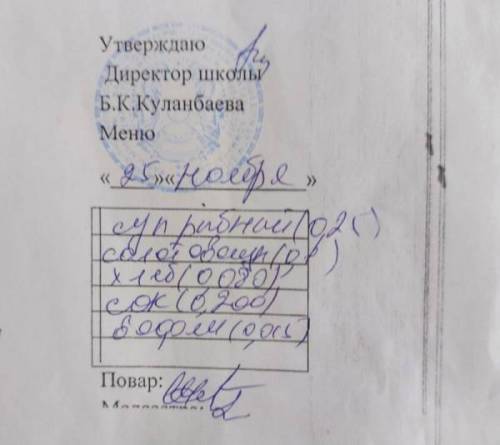 Утверждаю
Директор школы
Б.К.Куланбаева
Меню
« 25 »« ноября »
суп рыбный (0,25)
салат овощн (0,1)
хлеб (0,020)
сок (0,200)
вафли (0,015)
Повар: